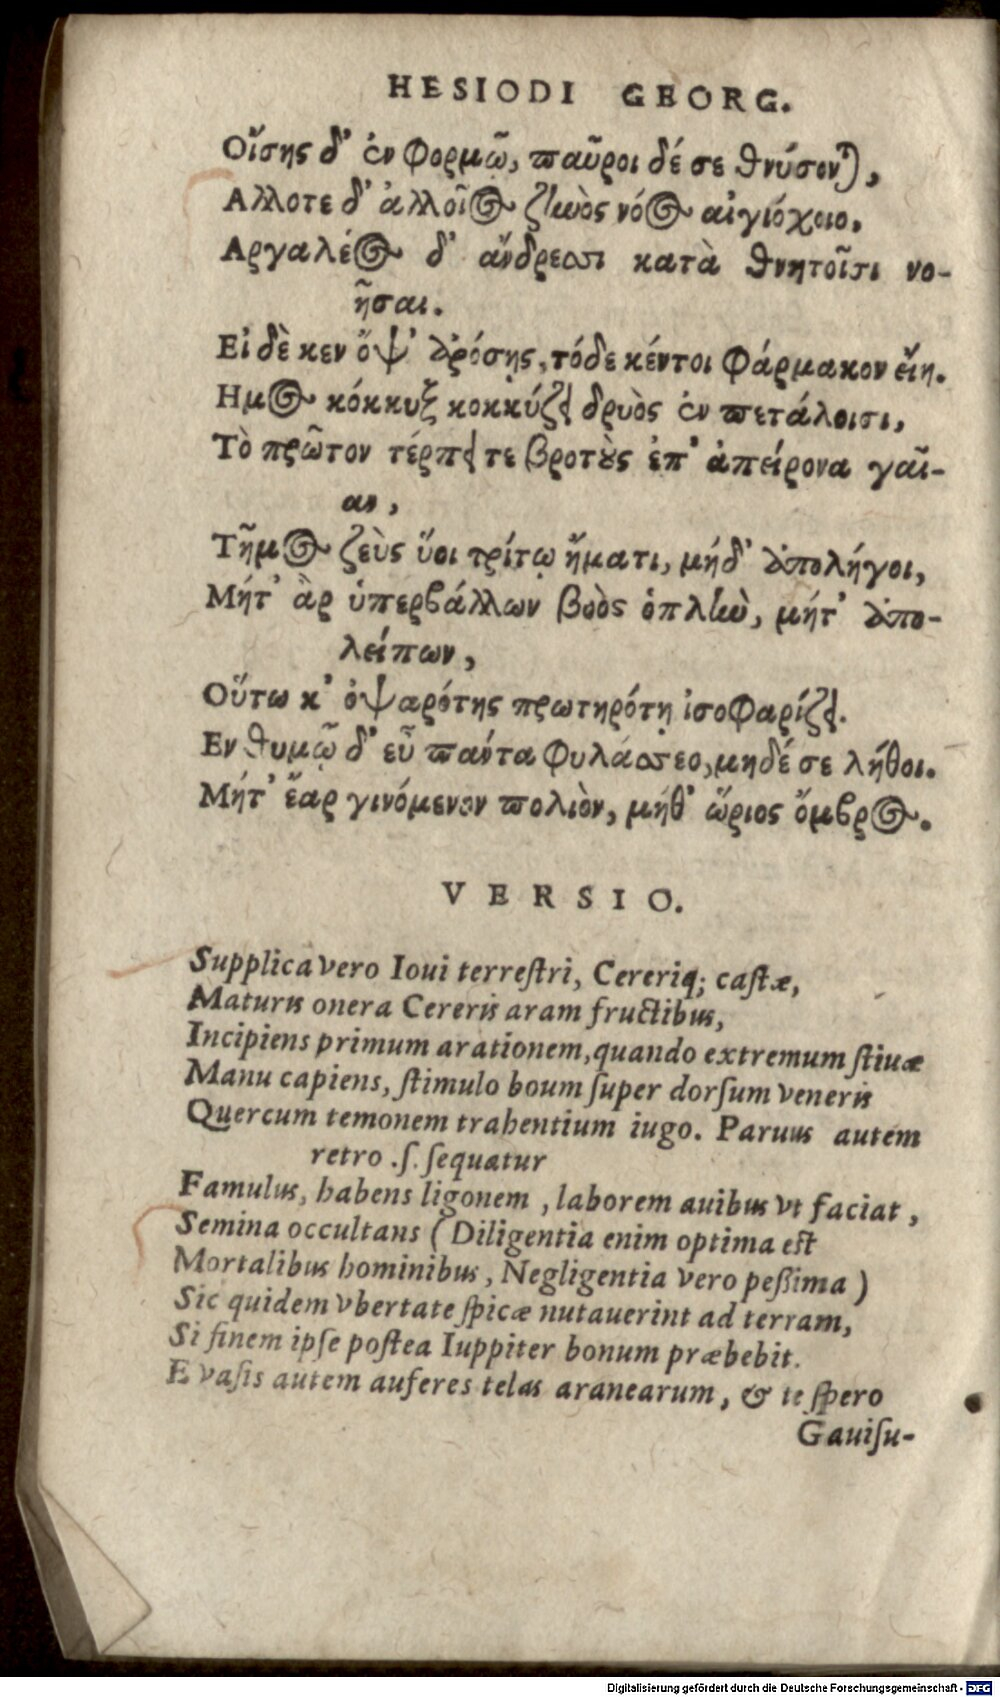 HESIODI GEORG.
Οἴσης δ' ἐν φορμῷ, παῦροι δέ σε θνύσονται,
Αλλοτε δ' ἀλλοῖος ζηνὸς νόος αἰγιόχοιο,
Αργαλέος δ' ἄνδρεσσι κατὰ θνητοῖσι νο-
ῆσαι.
Εἰ δὲ κεν ὄψ' ἀρόσῃς, τόδε κέντοι φάρμακον εἴη.
Ημος κόκκυξ κοκκύζει δρυὸς ἐν πετάλοισι,
Τὸ πρῶτον τέρπει τε βροτοὺς ἐπ' ἀπείρονα γαῖ-
αν,
Τῆμος ζεὺς ὕοι τρίτῳ ἤματι, μήδ' ἀπολήγοι,
Μήτ' ἂρ ὑπερβάλλων βοὸς ὁπλὴν, μήτ' ἀπο-
λείπων,
Οὕτω κ' ὀψαρότης πρωτηρότῃ ἰσοφαρίζει.
Εν θυμῷ δ' εὖ πάντα φυλάσσεο, μηδέ σε λήθοι.
Μήτ' ἔαρ γινόμενον πολιὸν, μήθ' ὥριος ὄμβρος.
VERSIO.
Supplica vero Ioui terreſtri, Cereriq; caſtæ,
Maturis onera Cereris aram fructibus,
Incipiens primum arationem, quando extremum ſtiuæ
Manu capiens, ſtimulo boum ſuper dorſum veneris
Quercum temonem trahentium iugo. Paruus autem
retro .ſ. ſequatur
Famulus, habens ligonem , laborem auibus vt faciat ,
Semina occultans ( Diligentia enim optima eſt
Mortalibus hominibus , Negligentia vero peßima )
Sic quidem vbertate ſpicæ nutauerint ad terram,
Si finem ipſe poſtea Iuppiter bonum præbebit.
E vaſis autem auferes telas aranearum, & te ſpero
Gauiſu-
Digitalisierung gefördert durch die Deutsche Forschungsgemeinschaft - DFG